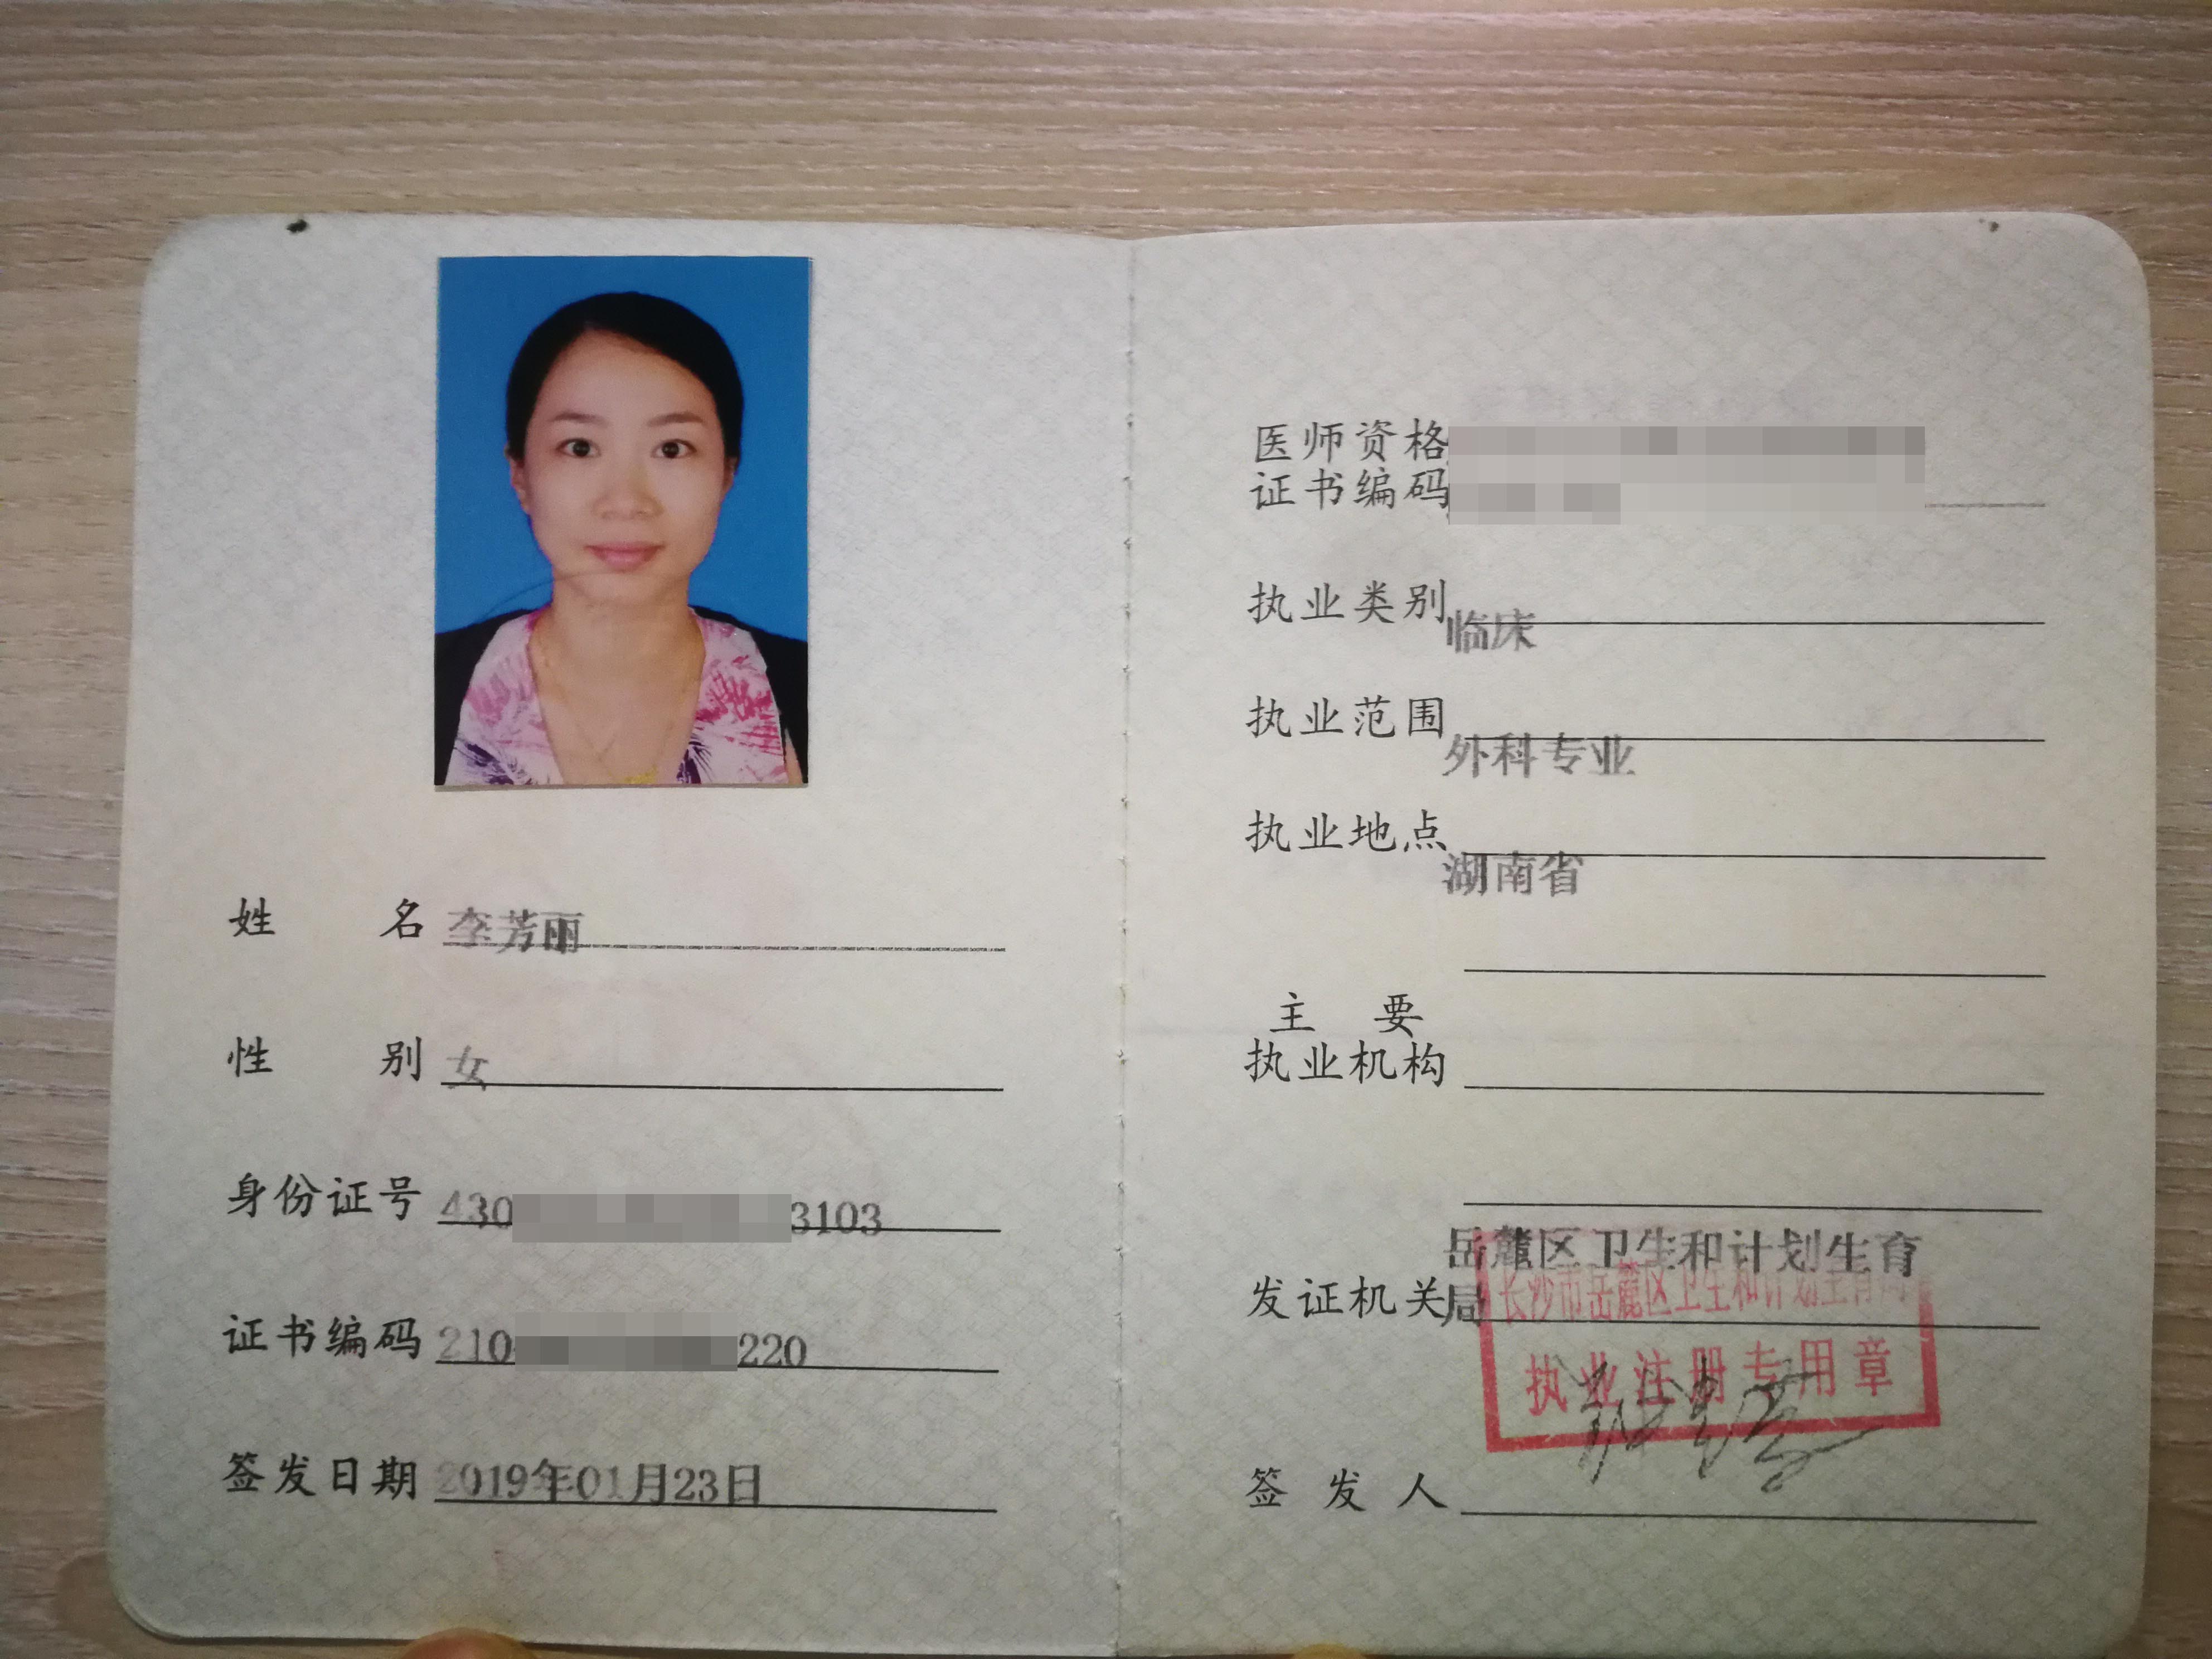 姓 名 李芳丽
性 别 女
身份证号 430 3103
证书编码 210 220
签发日期 2019年01月23日
医师资格
证书编码
执业类别 临床
执业范围 外科专业
执业地点 湖南省
主 要
执业机构
岳麓区卫生和计划生育
发证机关 局
长沙市岳麓区卫生和计划生育局
执业注册专用章
签 发 人